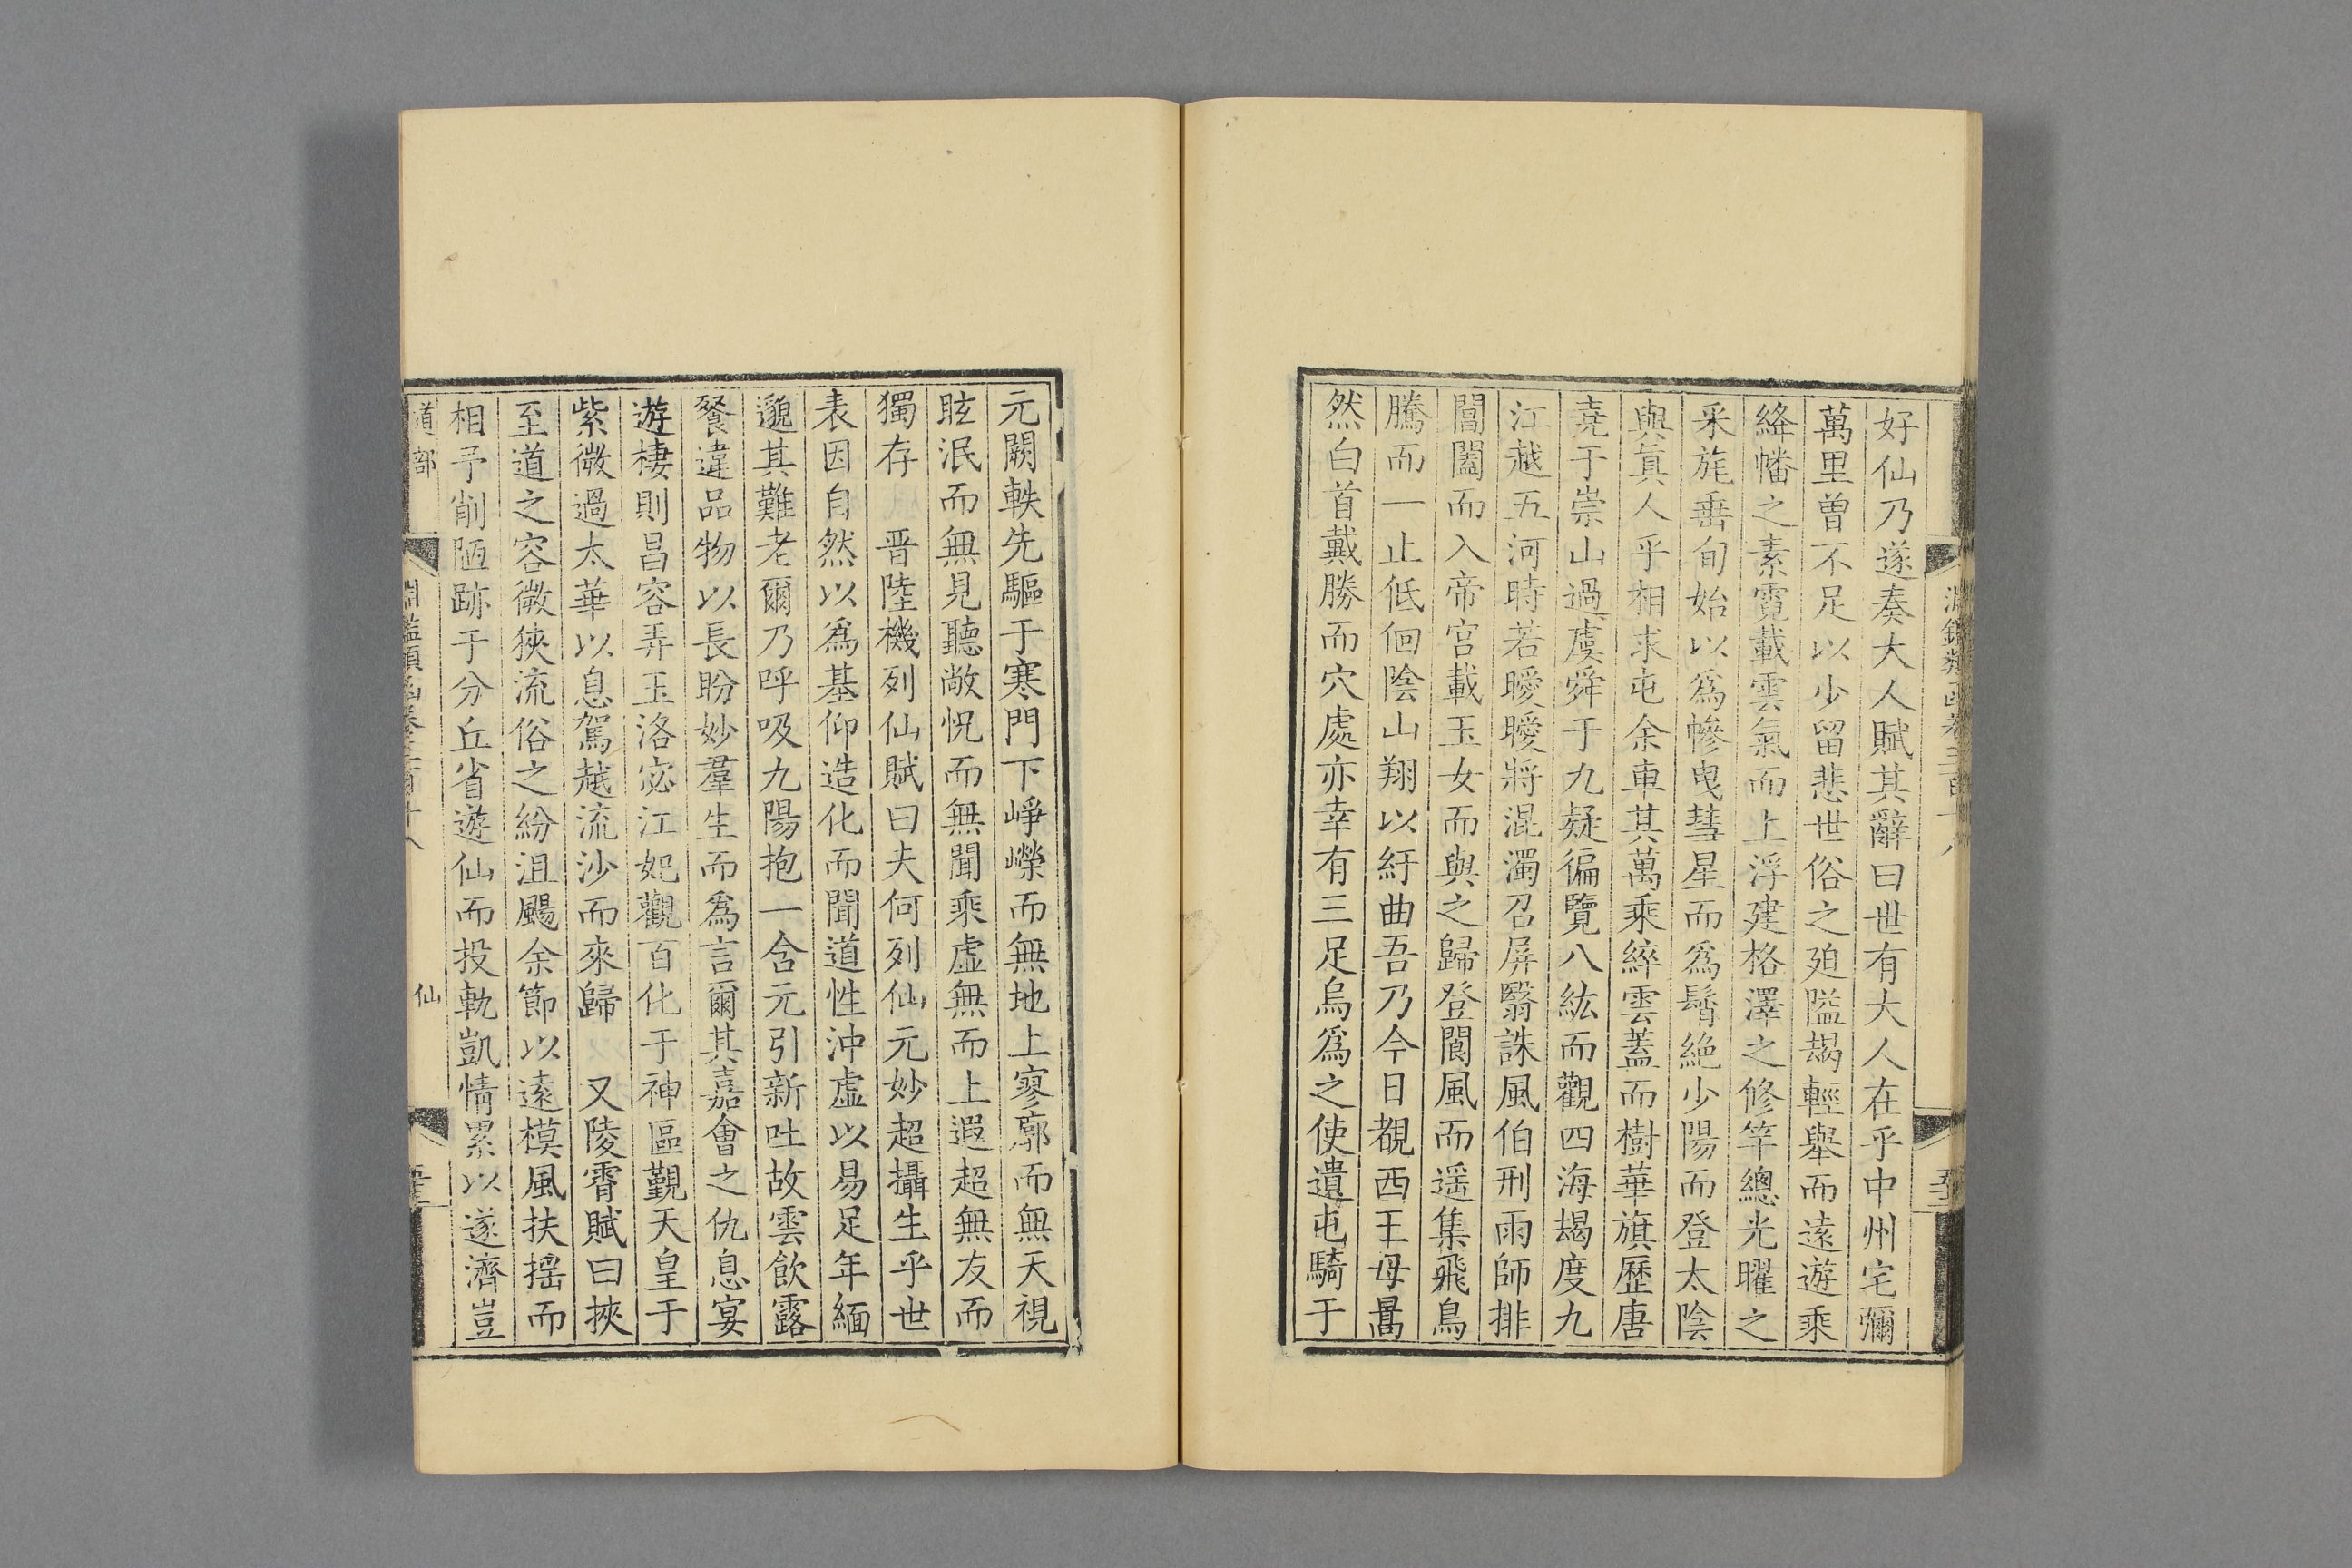 好仙乃遂奏大人賦其辭曰世有大人在乎中州宅彌
萬里曾不足以少留悲世俗之廹隘朅輕舉而遠遊乘
絳幡之素霓載雲氣而上浮建格澤之修竿總光曜之
采旄垂旬始以爲幓曳彗星而爲髾絶少陽而登太陰
與眞人乎相求屯余車其萬乘綷雲蓋而樹華旗歷唐
堯于崇山過虞舜于九疑徧覽八紘而觀四海朅度九
江越五河時若曖曖將混濁召屏翳誅風伯刑雨師排
閶闔而入帝宮載玉女而與之歸登閬風而遥集飛鳥
騰而一止低佪陰山翔以紆曲吾乃今日覩西王母暠
然白首戴勝而穴處亦幸有三足烏爲之使遺屯騎于
元闕軼先驅于寒門下崢嶸而無地上寥廓而無天視
眩泯而無見聽敞怳而無聞乘虛無而上遐超無友而
獨存　晋陸機列仙賦曰夫何列仙元妙超攝生乎世
表因自然以爲基仰造化而聞道性沖虛以易足年緬
邈其難老爾乃呼吸九陽抱一含元引新吐故雲飲露
餐違品物以長盼妙羣生而爲言爾其嘉會之仇息宴
遊棲則昌容弄玉洛宓江妃觀百化于神區覲天皇于
紫微過太華以息駕越流沙而來歸　又陵霄賦曰挾
至道之容微狹流俗之紛沮颺余節以遠模風扶搖而
相予削陋跡于分丘省遊仙而投軌凱情累以遂濟豈
道部　淵鑑類函卷三百十八　仙